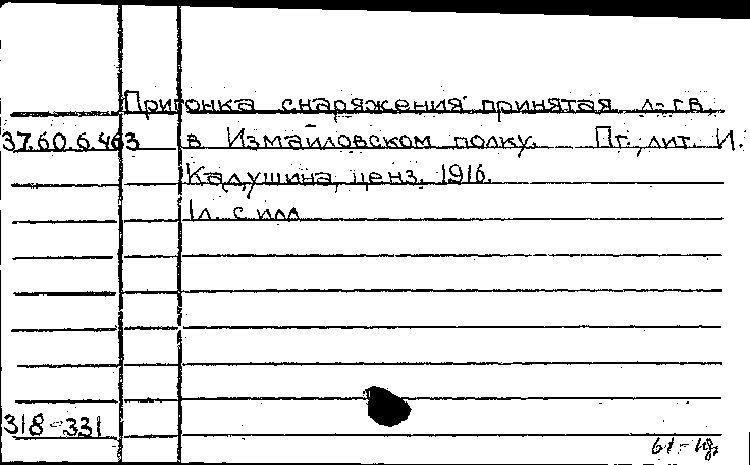 Пригонка снаряжения принятая л-гв.
37.60.6.463 в Измайловском полку. Пг., лит. И.
Кадушина, ценз. 1916.
1л. с илл
318-331